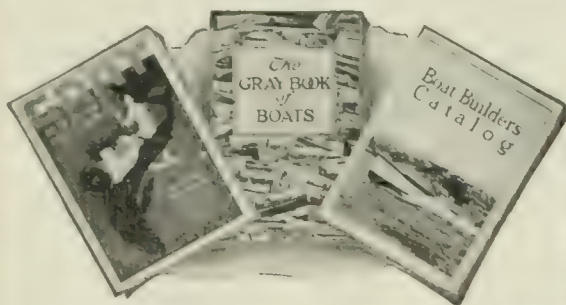 The
GRAY BOOK
of
BOATS
Boat Builders
Catalog